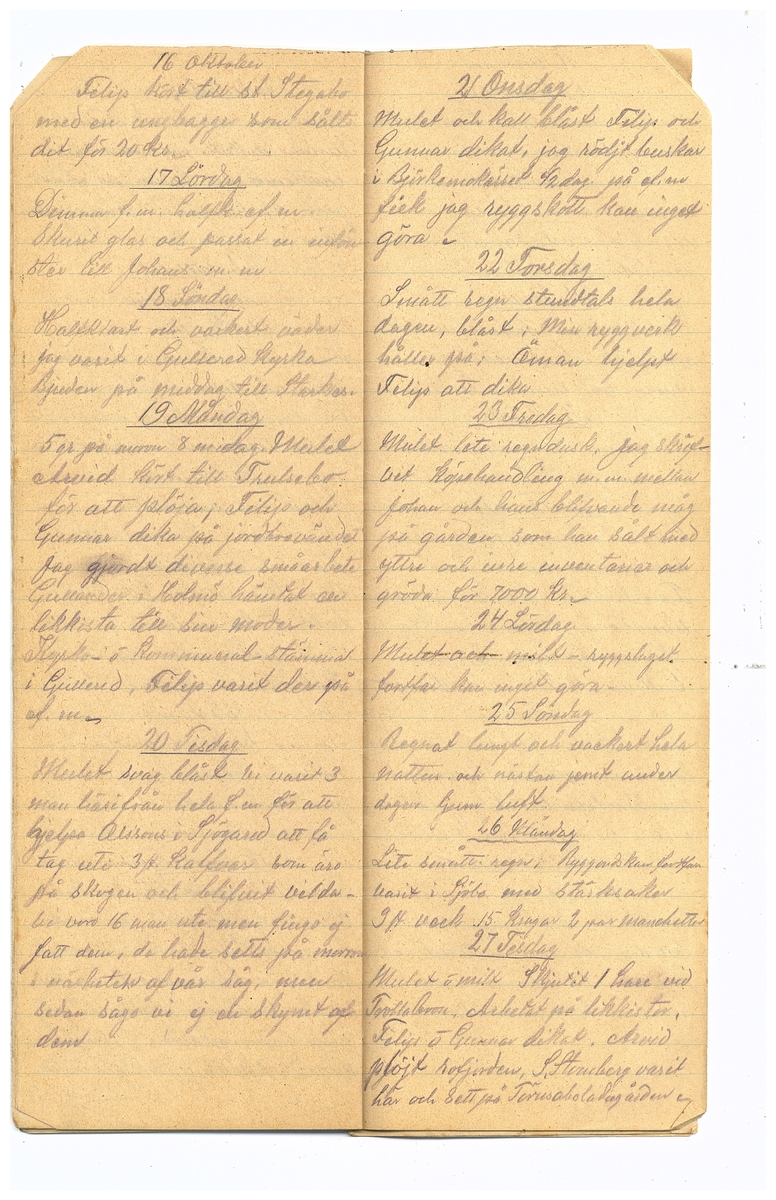 16 Oktober
Felip kört till St Stegabo
med en ungbagge som sålts
dit för 20 Kr.
17 Lördag
Dimma f.m. halfkl. ef.m.
Skurit glas och passat in
till Johans m.m
18 Söndag
Halfklart och vackert väder
jag varit i Gullered Kyrka
Bjuden på middag till Starkes.
19 Måndag
5 gr på moron 8 midag. Mulet
Arvid kört till Trulsebo
för att plöja; Felip och
Gunnar dika på
Jag gjordt diverse småarbete
Gullander i Holmö hämtat en
likkista till sin moder.
Kyrko- o kommunal-stämma
i Gullered, Felip varit der på
ef.m.
20 Tisdag
Mulet svag blåst vi varit 3
man härifrån hela f.m för att
hjelpa Olssons i Sjögared att få
tag uti 3 st Kalfvar som äro
på skogen och blifvit vilda -
vi voro 16 man ute men fingo ej
fatt dem, de hade setts på morron
i närheten af vår såg, men
sedan sågo vi ej en skymt af
dem
21 Onsdag
Mulet och kall blåst Felip och
Gunnar dikat, jag rödjt buskar
i 1/2 dag. på ef.m
fick jag ryggskott kan inget
göra -
22 Torsdag
Smått regn stundtals hela
dagen, blåst; Min ryggverk
håller på; Öman hjelpt
Felip att dika
23 Fredag
Mulet lite regndusk, jag skrif-
vet köpehandling m.m. mellan
Johan och hans blivande måg
på gården som han sålt med
yttre och inre inventarier och
gröda för 7000 Kr.
24 Lördag
Mulet och mild - ryggslaget
fortfar kan inget göra -
25 Söndag
Regnat lungt och vackert hela
natten och nästan jemt under
dagen ljum luft.
26 Måndag
Lite smått regn; fortfar
varit i Sjöbo med stärksaker
9 st veck 15 Kragar 2 par manchetter
27 Tisdag
Mulet o milt Skjutit 1 hare vid
Arbetat på likkistor.
Felip o Gunnar dikat. Arvid
plöjt rofjorden, S. Stomberg varit
här och sett på